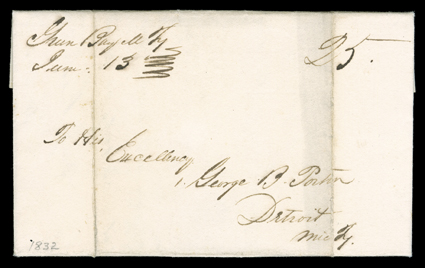 Green Bay M Ty
June 13
25.
To His
Excellency
George B. Porter
Detroit
Mic Ty.
1832